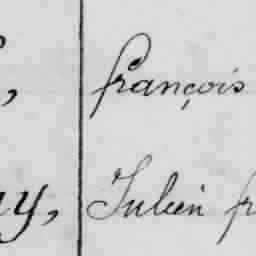 françois
Julien